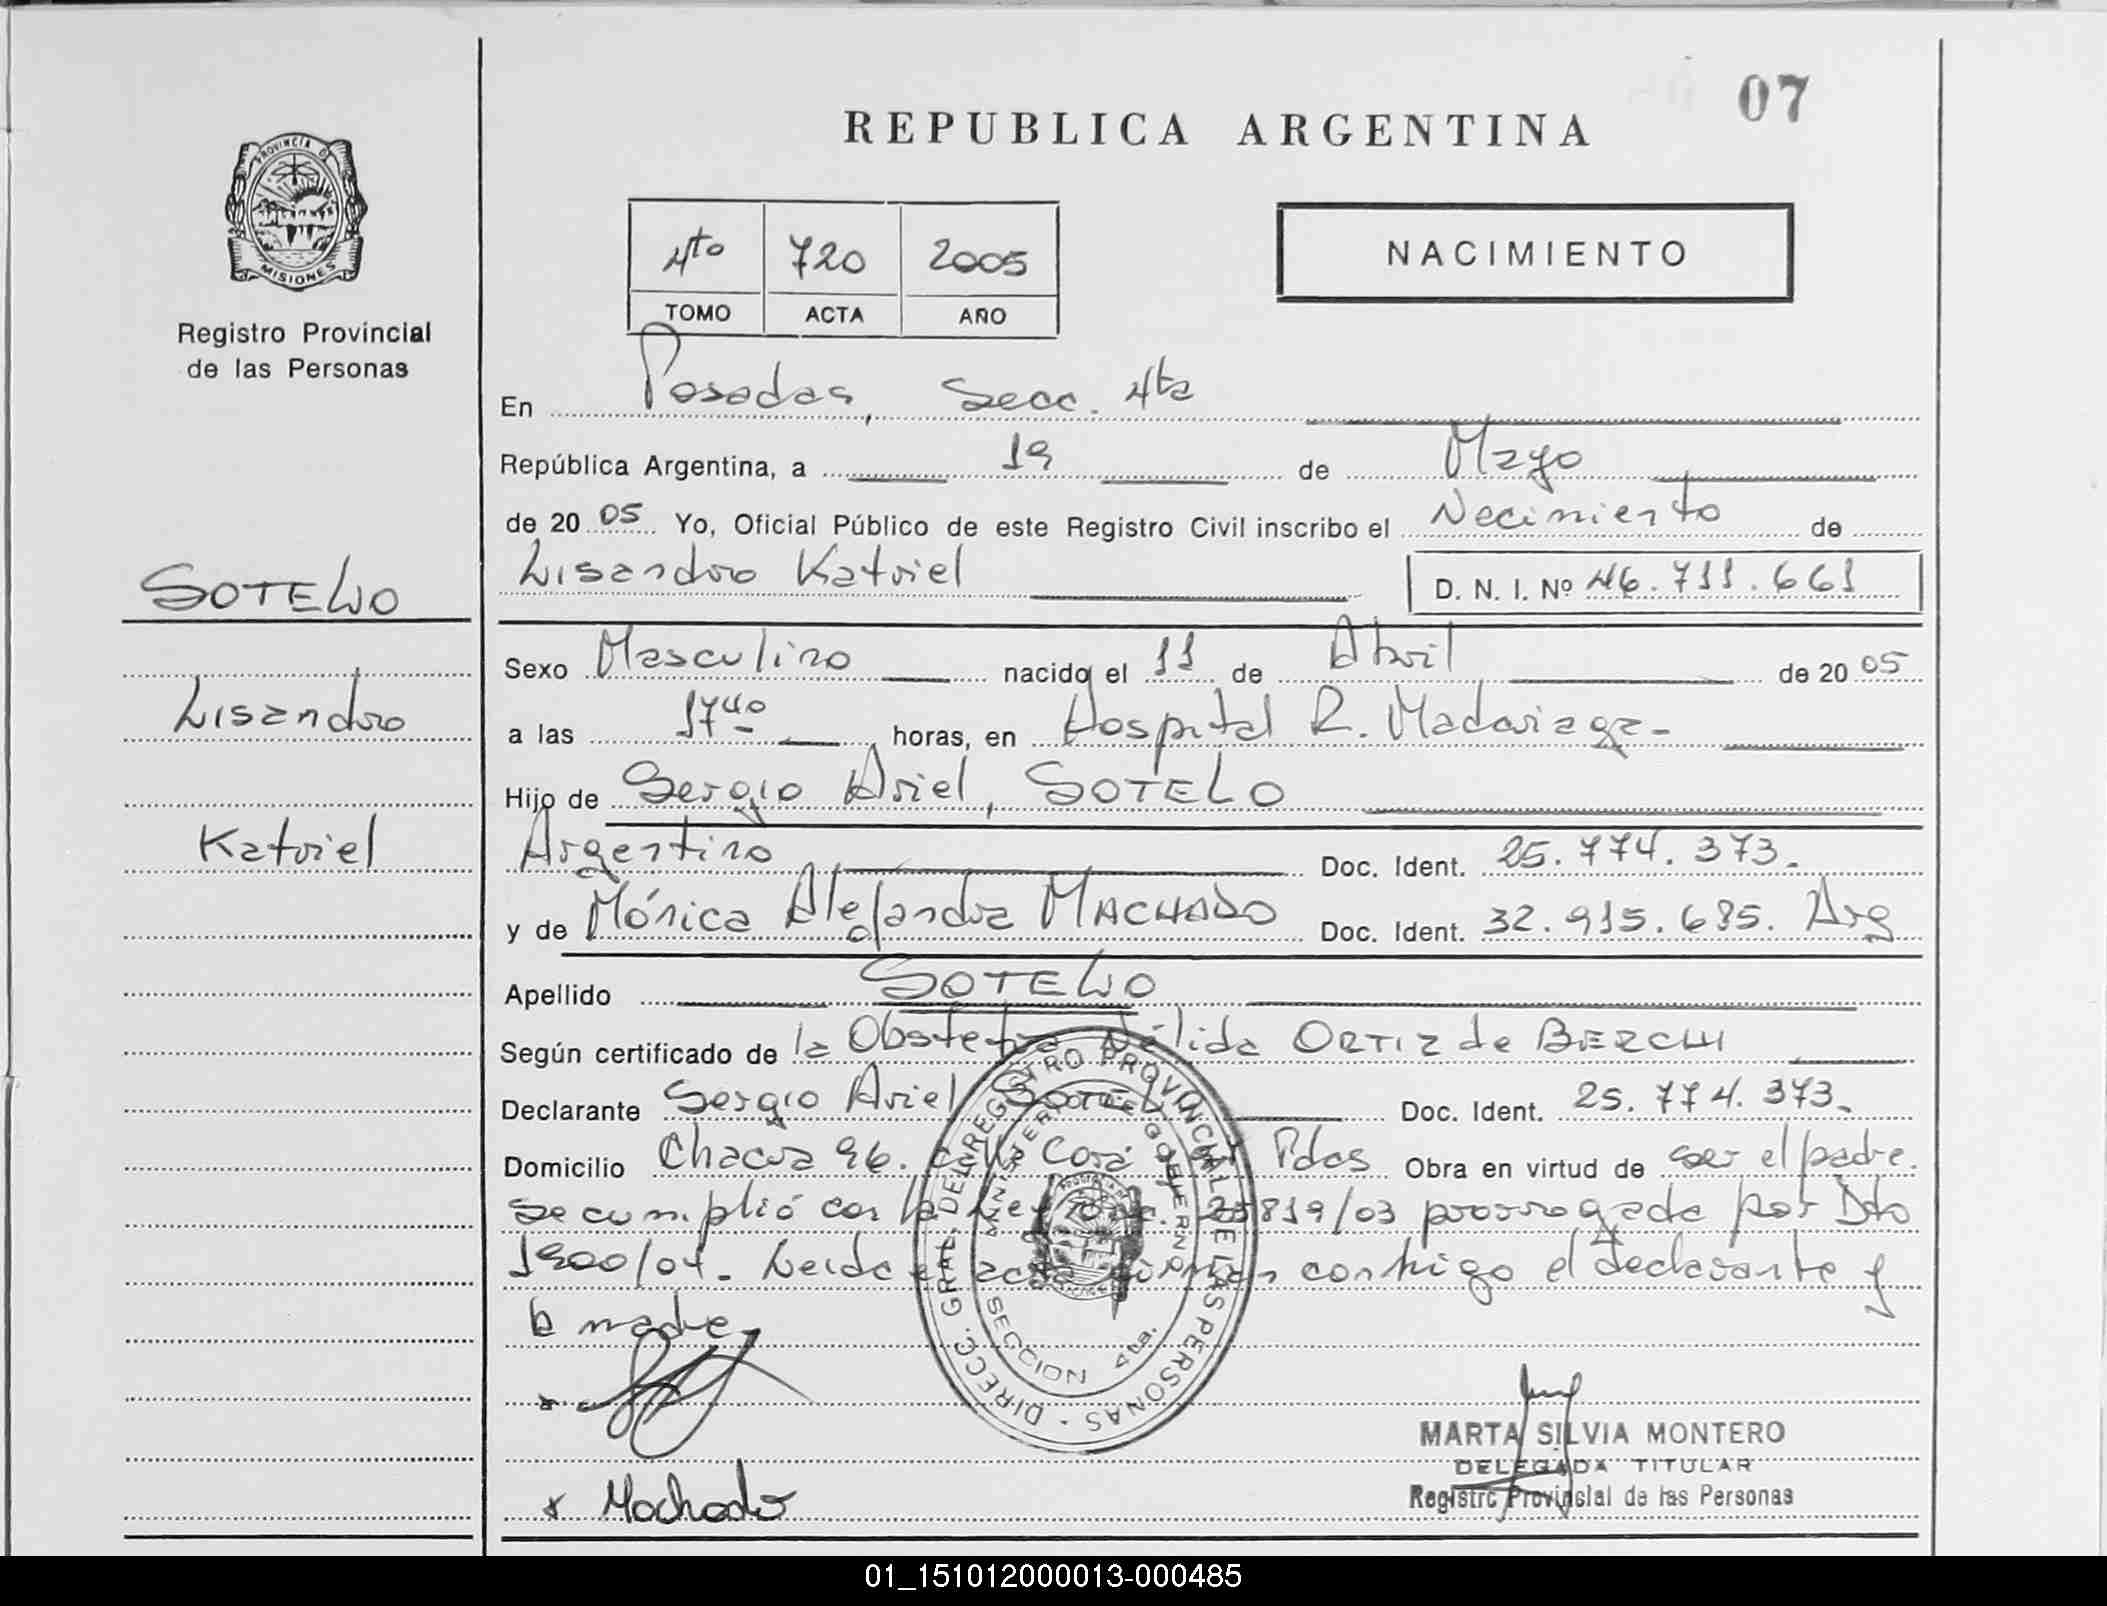 07
REPUBLICA ARGENTINA
PROVINCIA DE
MISIONES
Registro Provincial
de las Personas
4to 720 2005
TOMO ACTA AÑO
NACIMIENTO
En Posadas, Secc. 4ta
República Argentina, a 19 de Mayo
de 2005 Yo, Oficial Público de este Registro Civil inscribo el Nacimiento de
Lisandro Katriel D. N. I. Nº 46.711.661
SOTELO
Lisandro
Katriel
Sexo Masculino nacido el 11 de Abril de 2005
a las 17 40 horas, en Hospital R. Madariaga-
Hijo de Sergio Ariel, SOTELO
Argentino Doc. Ident. 25.774.373.
y de Mónica Alejandra MACHADO Doc. Ident. 32.915.685. Arg
Apellido SOTELO
Según certificado de la Obstetra Nélida ORTIZ de BERCHI
Declarante Sergio Ariel SOTELO Doc. Ident. 25.774.373.
Domicilio Chacra 96. Pdas Obra en virtud de ser el padre.
Se cumplió con la Ley 25819/03 prorrogada por Dto
1900/04. Leida el acta firman conmigo el declarante y
la madre.
x
x Machado
DIRECC. GRAL. DEL REGISTRO PROVINCIAL DE LAS PERSONAS
MINISTERIO DE GOBIERNO
SECCION 4ta.
MARTA SILVIA MONTERO
DELEGADA TITULAR
Registro Provincial de las Personas
01_151012000013-000485